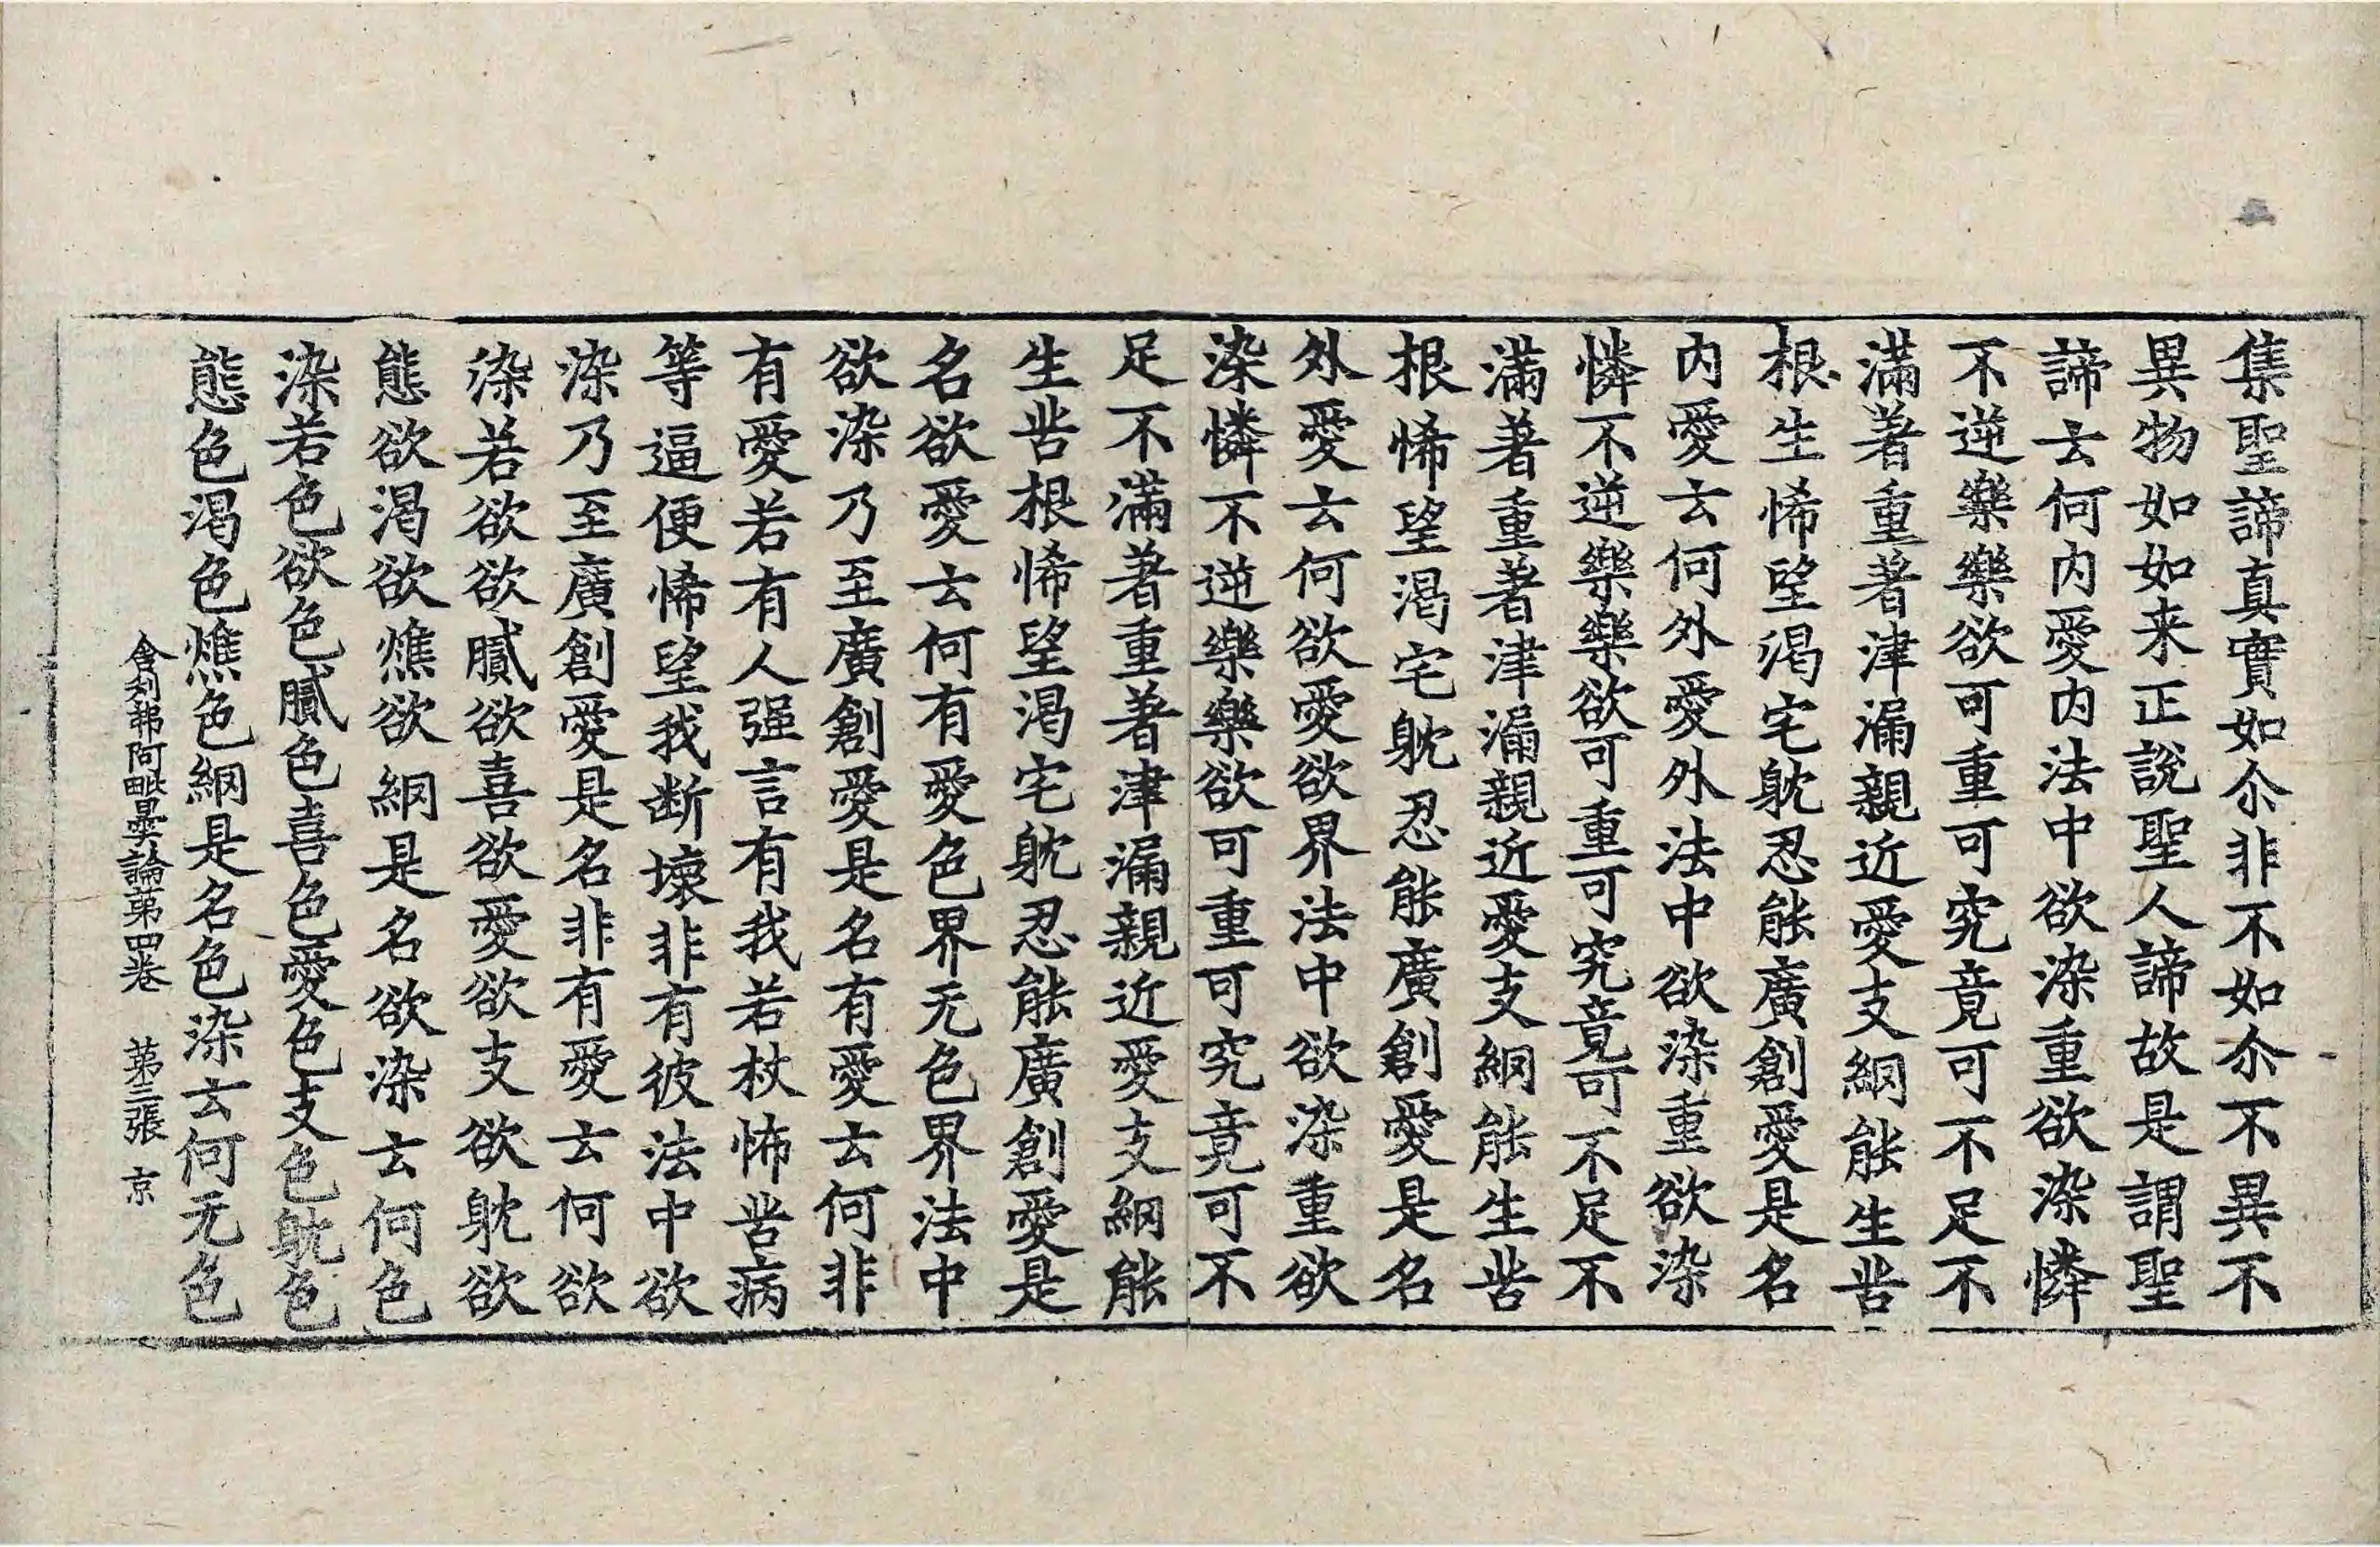 集聖諦真實如尒非不如尒不異不
異物如如来正說聖人諦故是謂聖
諦云何內愛內法中欲染重欲染憐
不逆樂樂欲可重可究竟可不足不
滿著重著津漏親近愛支網能生苦
根生悕望渴宅躭忍能廣創愛是名
內愛云何外愛外法中欲染重欲染
憐不逆樂樂欲可重可究竟可不足不
滿著重著津漏親近愛支網能生苦
根悕望渴宅躭忍能廣創愛是名
外愛云何欲愛欲界法中欲染重欲
染憐不逆樂樂欲可重可究竟可不
足不滿著重著津漏親近愛支網能
生苦根悕望渴宅躭忍能廣創愛是
名欲愛云何有愛色界无色界法中
欲染乃至廣創愛是名有愛云何非
有愛若有人强言有我若杖怖苦病
等逼便悕望我断壞非有彼法中欲
染乃至廣創愛是名非有愛云何欲
染若欲欲膩欲喜欲愛欲支欲躭欲
態欲渴欲燋欲網是名欲染云何色
染若色欲色膩色喜色愛色支色躭色
態色渴色燋色網是名色染云何无色
舍利弗阿毗曇論第四卷 第三張 京